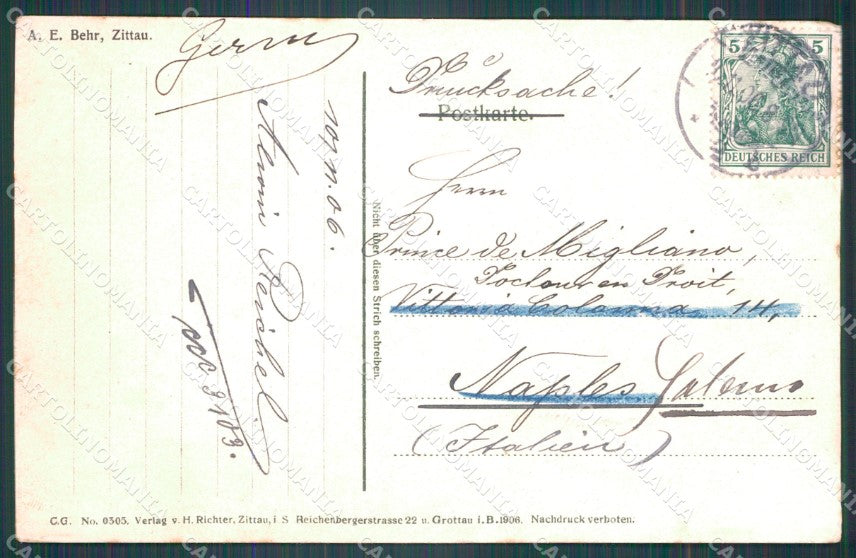 A. E. Behr, Zittau.
Germ
Drucksache!
Postkarte.
5 5
DEUTSCHES REICH
Herrn
Prince de Migliano,
Docteur en Droit,
Vittoria Colonna, 14,
Naples Salerno
(Italien)
10/11.06.
Reichel
Nicht über diesen Strich schreiben.
C.G. No. 0305. Verlag v. H. Richter, Zittau, i S Reichenbergerstrasse 22 u. Grottau i. B. 1906. Nachdruck verboten.
CARTOLINOMANIA